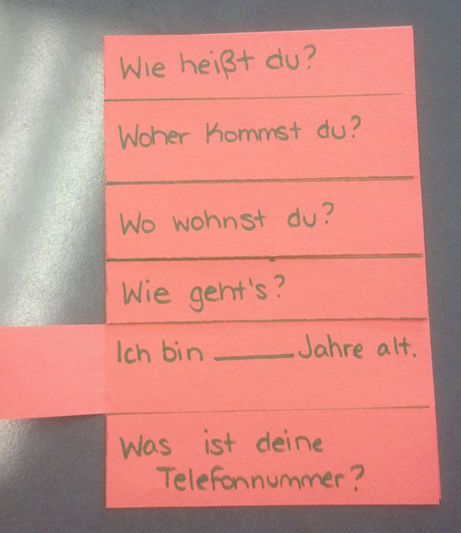 Wie heißt du?
Woher kommst du?
Wo wohnst du?
Wie geht's?
Ich bin ______ Jahre alt.
Was ist deine
Telefonnummer?